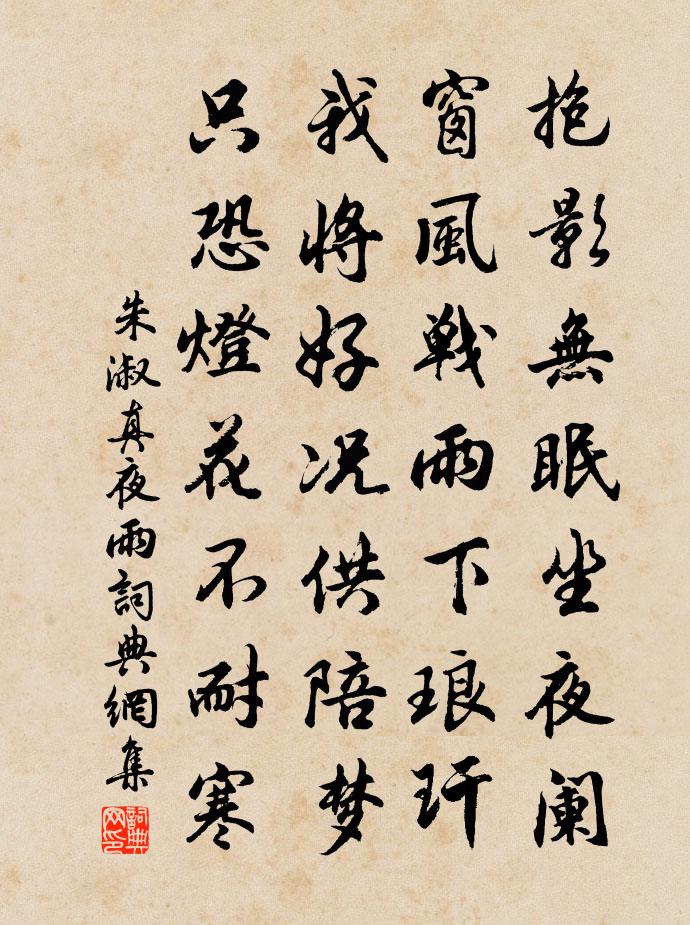 抱影無眠坐夜阑
窗風戰雨下琅玕
我將好况供陪梦
只恐燈花不耐寒
朱淑真夜雨詞典網集
詞典网印